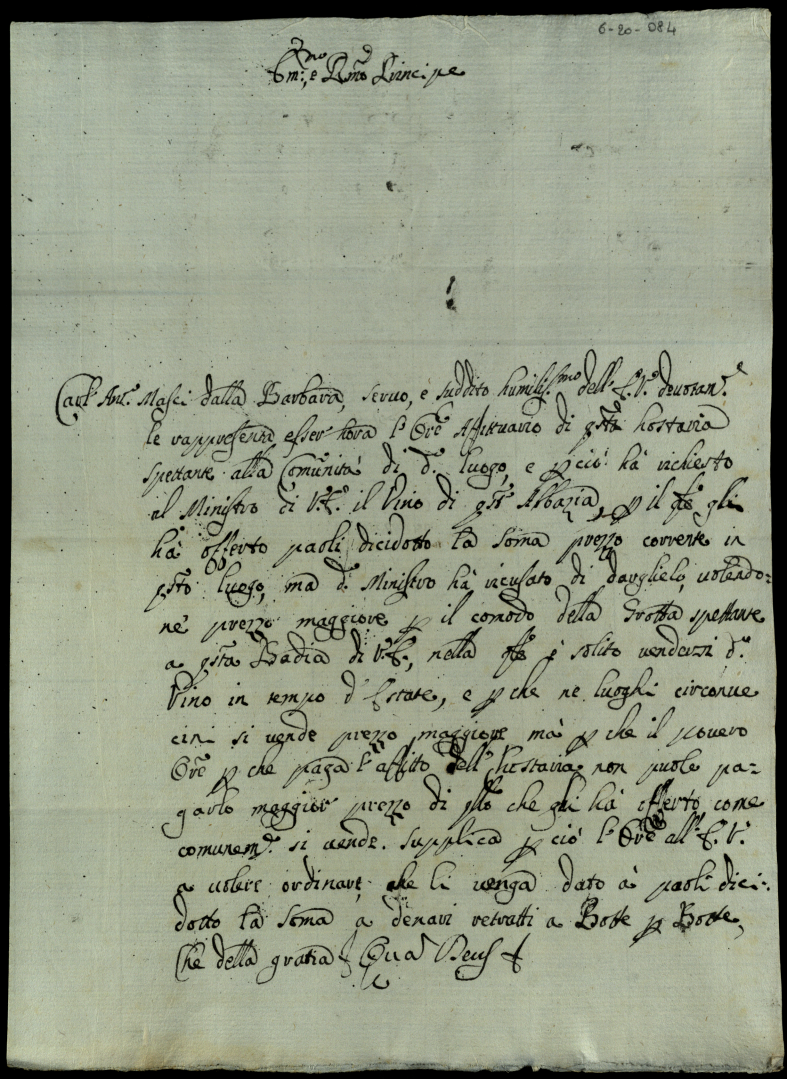 6-20-084
Em:mo e Rmo Principe
Carl' Ant.o Masci dalla Barbara, seruo, e suddito humiliss.mo dell' E. V. deuotam.te
le rappresenta esser' hora l' Ore Affittuario di qsta hostaria
spettante alla Comunità di d.o luogo, e p ciò hà richiesto
al Ministro di V. E. il Vino di qsta Abbazia, p il qle gli
hà offerto paoli dicidotto la soma prezzo corrente in
qsto luogo, mà d.o Ministro hà ricusato di darglielo, uolendo=
ne prezzo maggiore p il comodo della Grotta spettante
a qsta Badia di V. E., nella qle è solito vendersi d.o
Vino in tempo d' Estate, e p che ne luoghi circonue
cini si uende prezzo maggiore mà p che il pouero
Ore p che paga l' affitto dell' Hostaria non puole pa=
garlo maggior prezzo di qllo che gli hà offerto come
comunem.te si uende. Supplica p ciò l' Ore all' E. V.
a uolere ordinare che li uenga dato à paoli dici=
dotto la soma a denari retratti a Botte p Botte,
Che della gratia Qua Deus